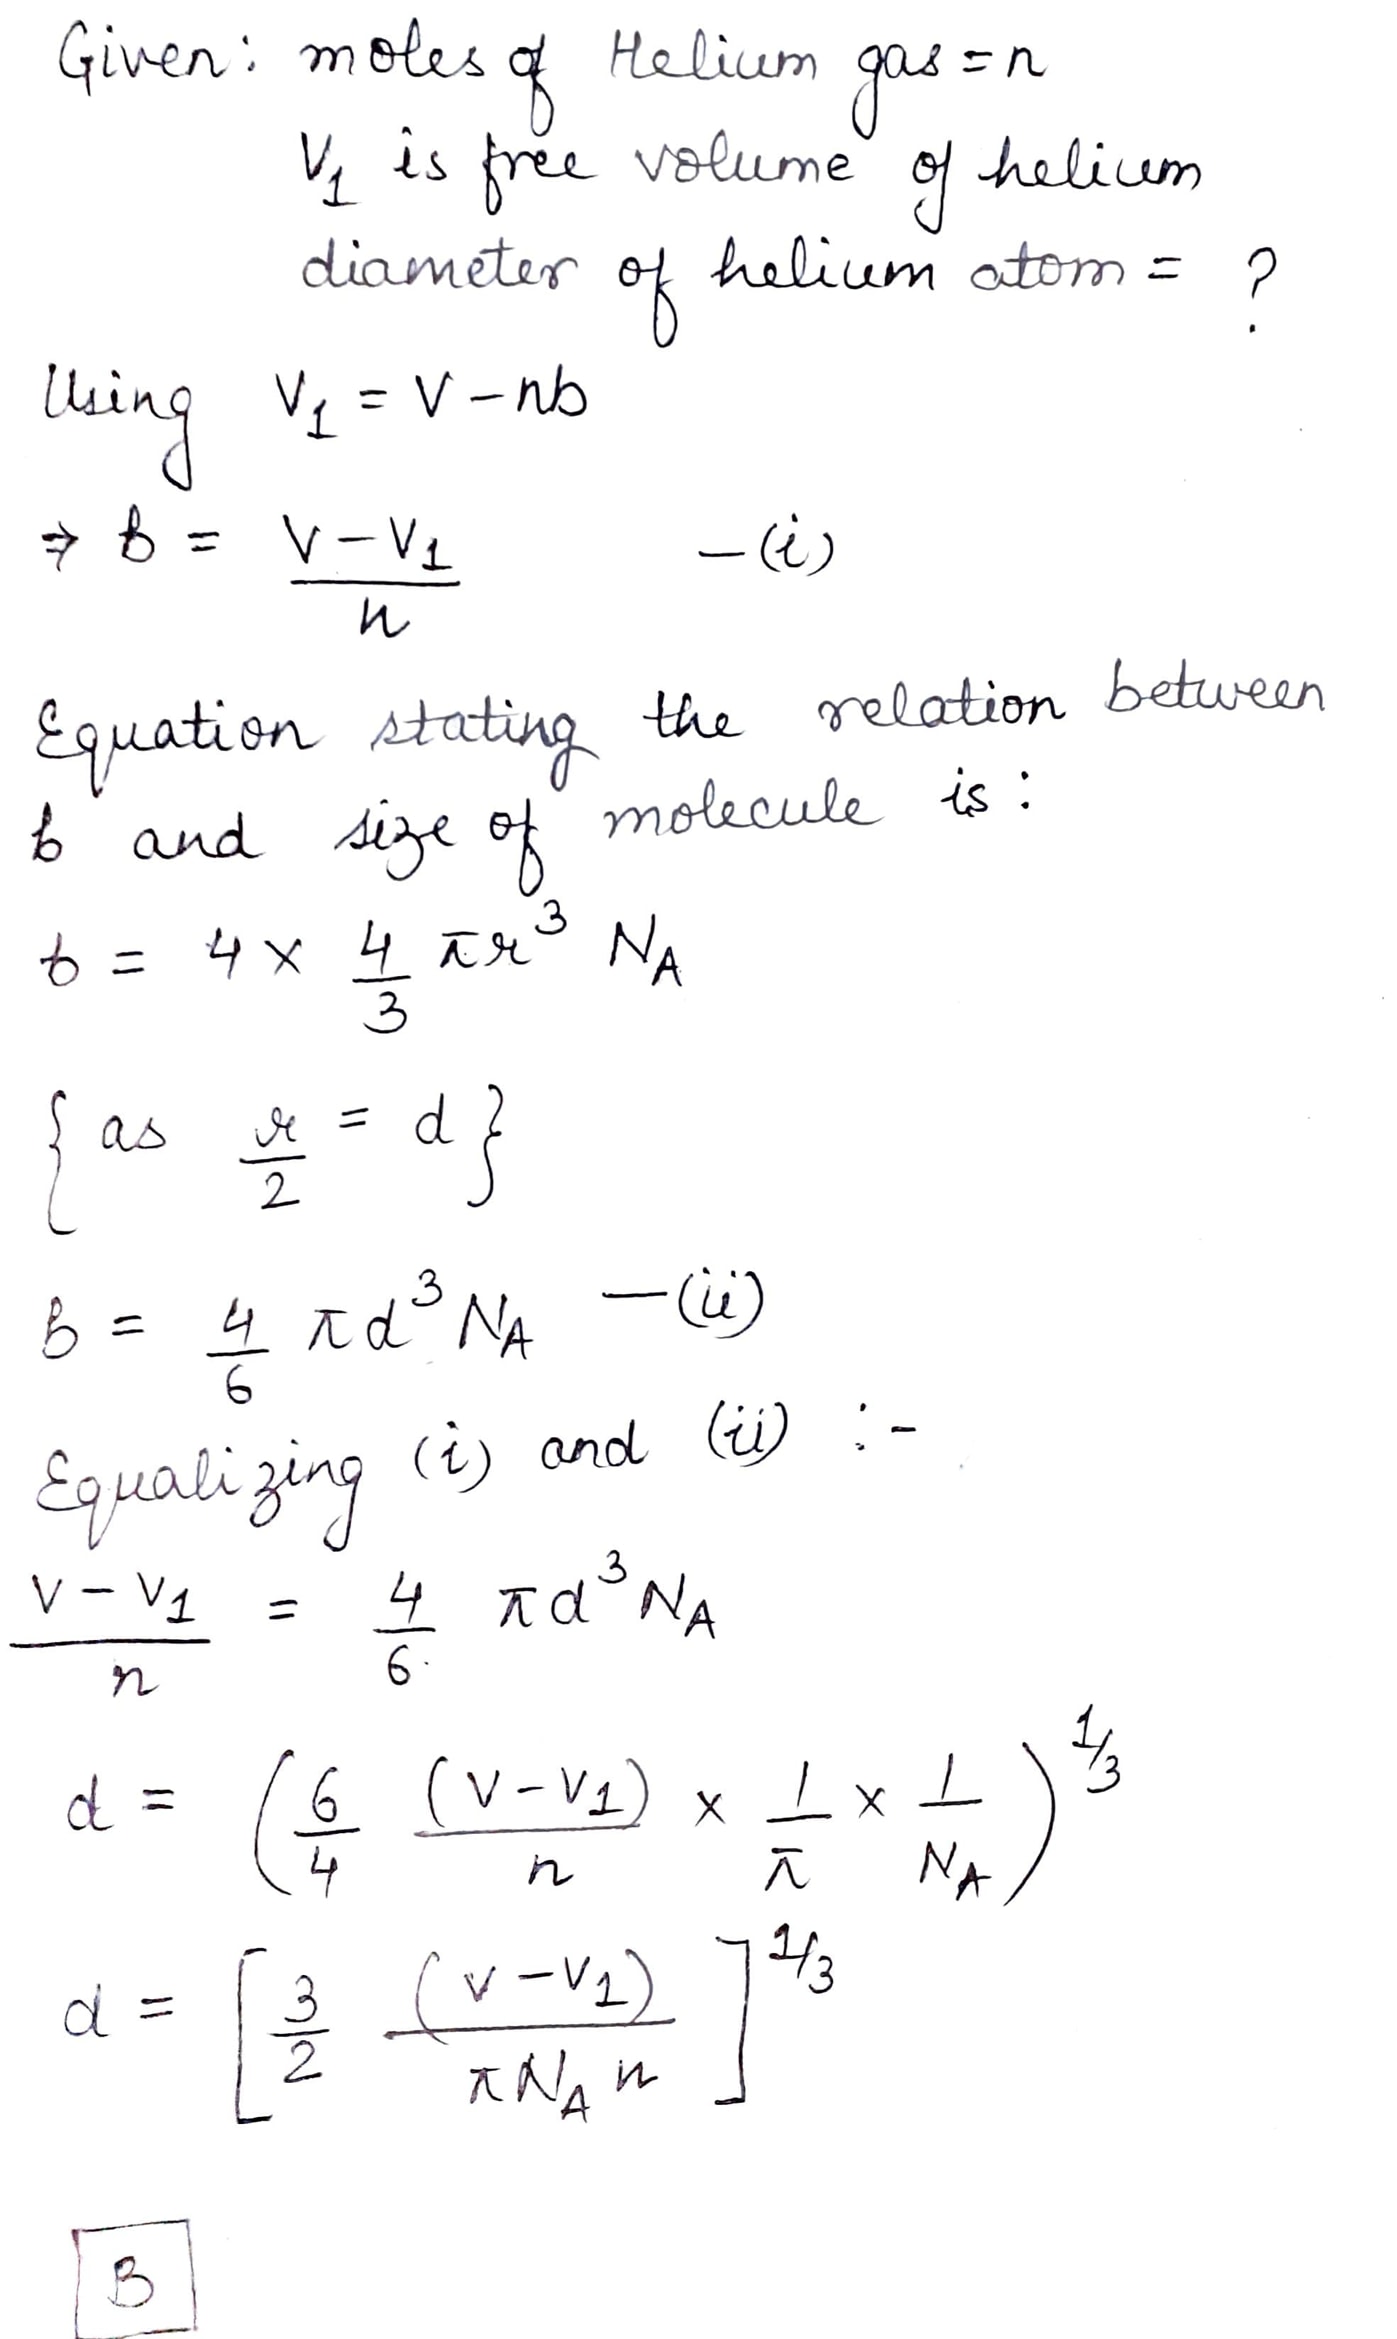 Given: moles of Helium gas = n
V₁ is free volume of helium
diameter of helium atom = ?
Using V₁ = V - nb
⇒ b = (V - V₁)/n -(i)
Equation stating the relation between
b and size of molecule is :
b = 4 × 4/3 πr³ N_A
{ as r/2 = d }
b = 4/6 πd³ N_A -(ii)
Equalizing (i) and (ii) :-
(V - V₁)/n = 4/6 πd³ N_A
d = ( 6/4 (V - V₁)/n × 1/π × 1/N_A )^1/3
d = [ 3/2 (V - V₁)/(π N_A n) ]^1/3
B